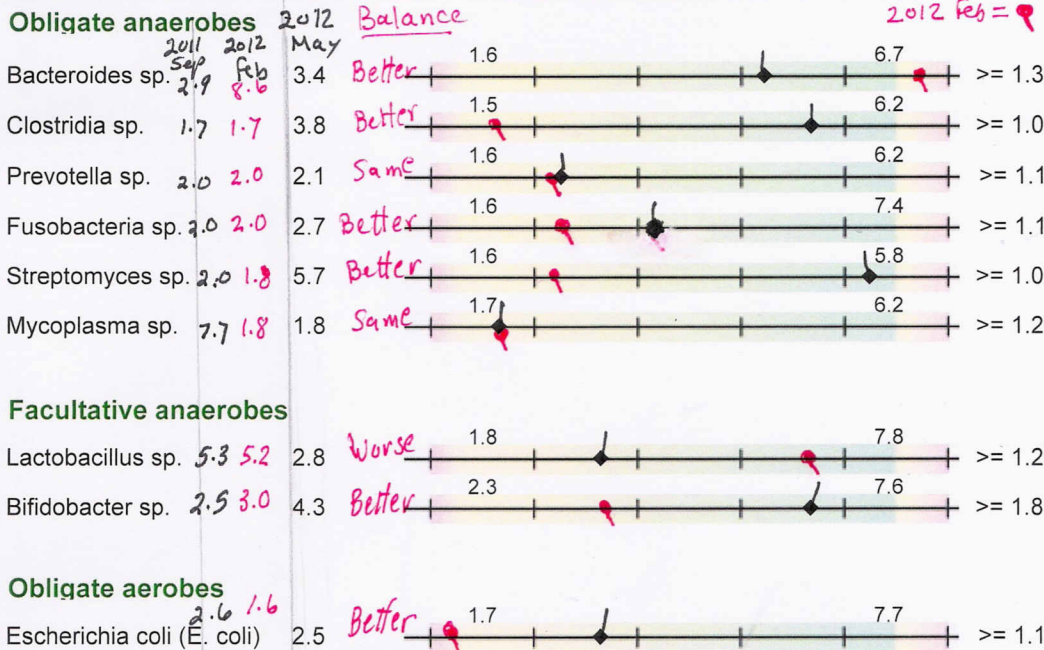 Obligate anaerobes 2012 Balance 2012 Feb =
2011 2012 May
Sep Feb
1.6 6.7
Bacteroides sp. 2.9 8.6 3.4 Better >= 1.3
1.5 6.2
Clostridia sp. 1.7 1.7 3.8 Better >= 1.0
1.6 6.2
Prevotella sp. 2.0 2.0 2.1 Same >= 1.1
1.6 7.4
Fusobacteria sp. 2.0 2.0 2.7 Better >= 1.1
1.6 5.8
Streptomyces sp. 2.0 1.8 5.7 Better >= 1.0
1.7 6.2
Mycoplasma sp. 7.7 1.8 1.8 Same >= 1.2
Facultative anaerobes
1.8 7.8
Lactobacillus sp. 5.3 5.2 2.8 Worse >= 1.2
2.3 7.6
Bifidobacter sp. 2.5 3.0 4.3 Better >= 1.8
Obligate aerobes
2.6 1.6 1.7 7.7
Escherichia coli (E. coli) 2.5 Better >= 1.1